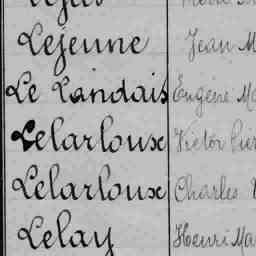 Lejeune Jean M
Le Landais Eugène Ma
Lelarloux Victor Pier
Lelarloux Charles
Lelay Henri Ma